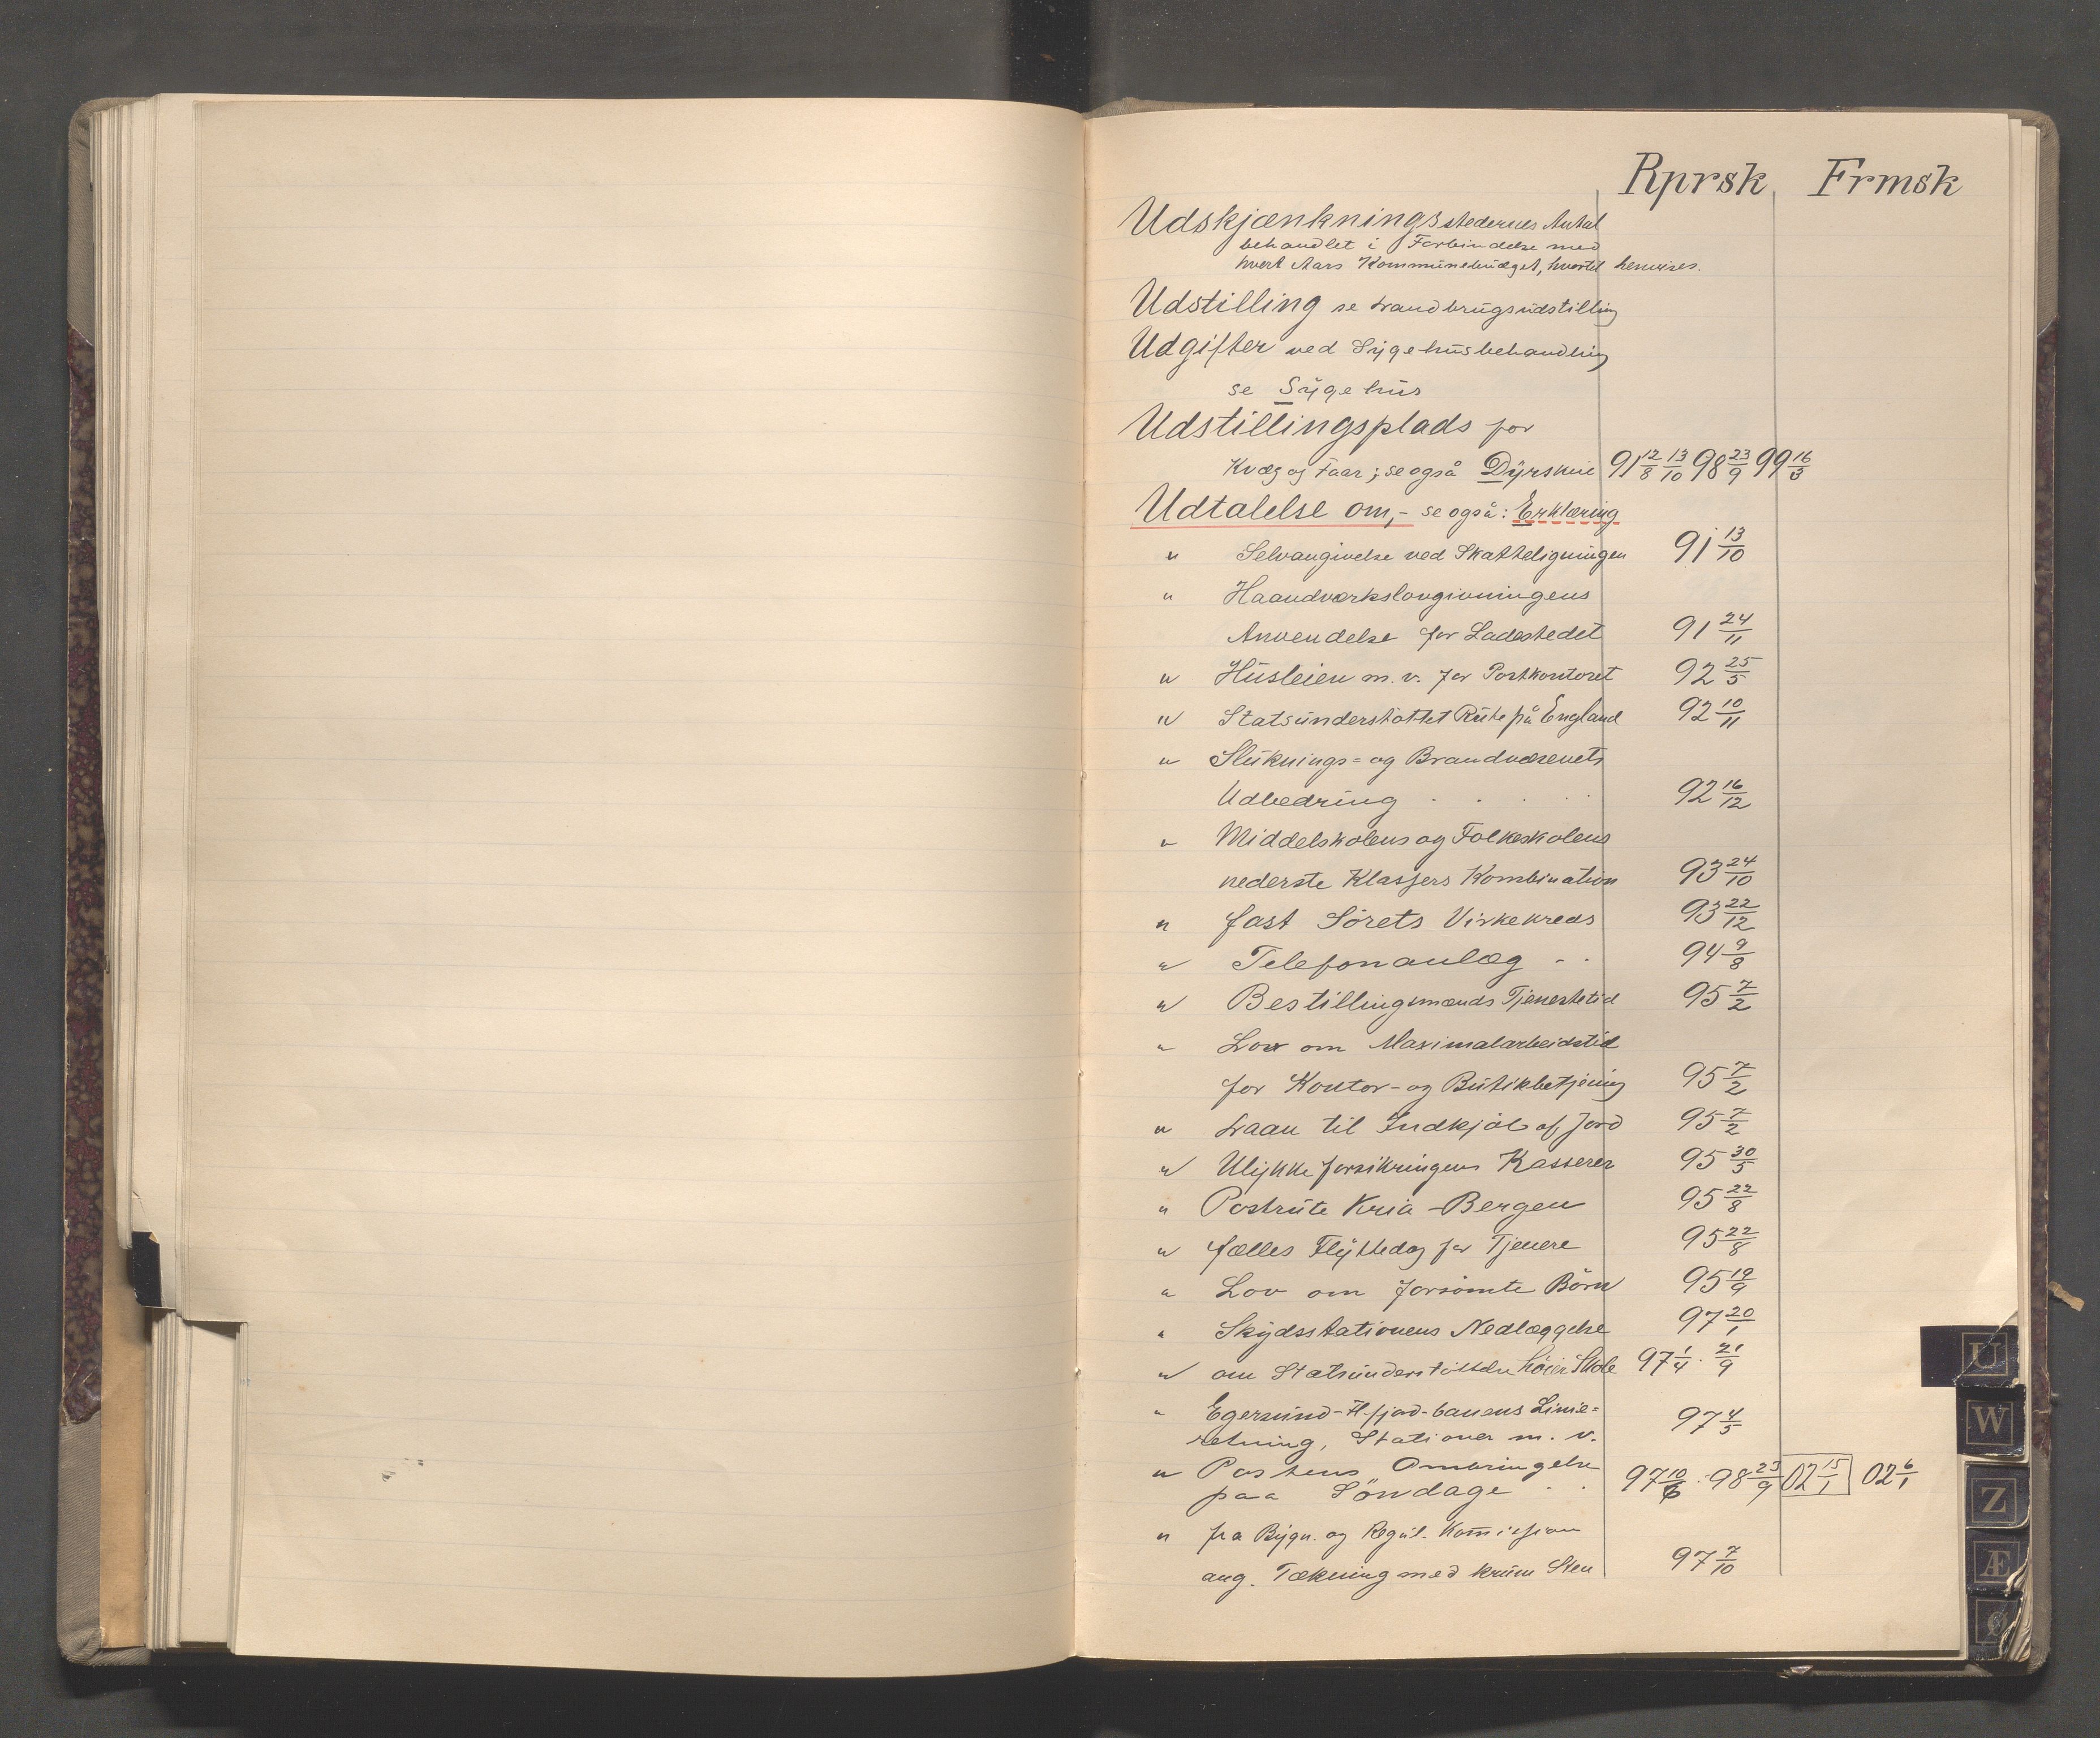 Rprsk Frmsk
Udskjænkningsstedernes Antal
behandlet i Forbindelse med
hvert Aars Kommunebudget, hvortil henvises.
Udstilling se Landbrugsudstilling
Udgifter ved Sygehusbehandling
se Sygehus
Udstillingsplads for
Kvæg og Faar; se også Dyrskue 91 12/8 13/10 98 23/9 99 16/3
Udtalelse om,- se også: Erklæring
" Selvangivelse ved Skatteligningen 91 13/10
" Haandverkslovgivningens
Anvendelse for Ladestedet 91 24/11
" Husleien m. v. for Postkontoret 92 25/5
" Statsunderstøttet Rute på England 92 10/11
" Sluknings= og Brandvæsenets
Udbedring . . . . 92 16/12
" Middelskolens og Folkeskolens
nederste Klassers Kombination 93 24/10
" fast Sørets Virkekreds 93 22/12
" Telefonanlæg - . 94 9/8
" Bestillingsmænds Tjenestetid 95 7/2
" Lov om Maximalarbeidstid
for Kontor- og Butikbetjening 95 7/2
" Laan til Indkjøb af Jord 95 7/2
" Ulykkeforsikringens Kasserer 95 30/5
" Postrute Kria - Bergen 95 22/8
" fælles Flyttedag for Tjenere 95 22/8
" Lov om forsømte Börn 95 19/9
" Skydsstationens Nedlæggelse 97 20/1
" om Statsunderstöttelse höier Skole 97 1/4 . 21/9
" Egersund-Flfjord-banens Linie=
retning, Stationer m. v. 97 4/5
" Postens Ombringelse
paa Söndage . . 97 10/6 . 98 23/9 02 15/1 02 6/1
" fra Bygn. og Regul. Kom̄ission
ang. Tækning med krum Sten 97 7/10
U
W
Z
Æ
Ø